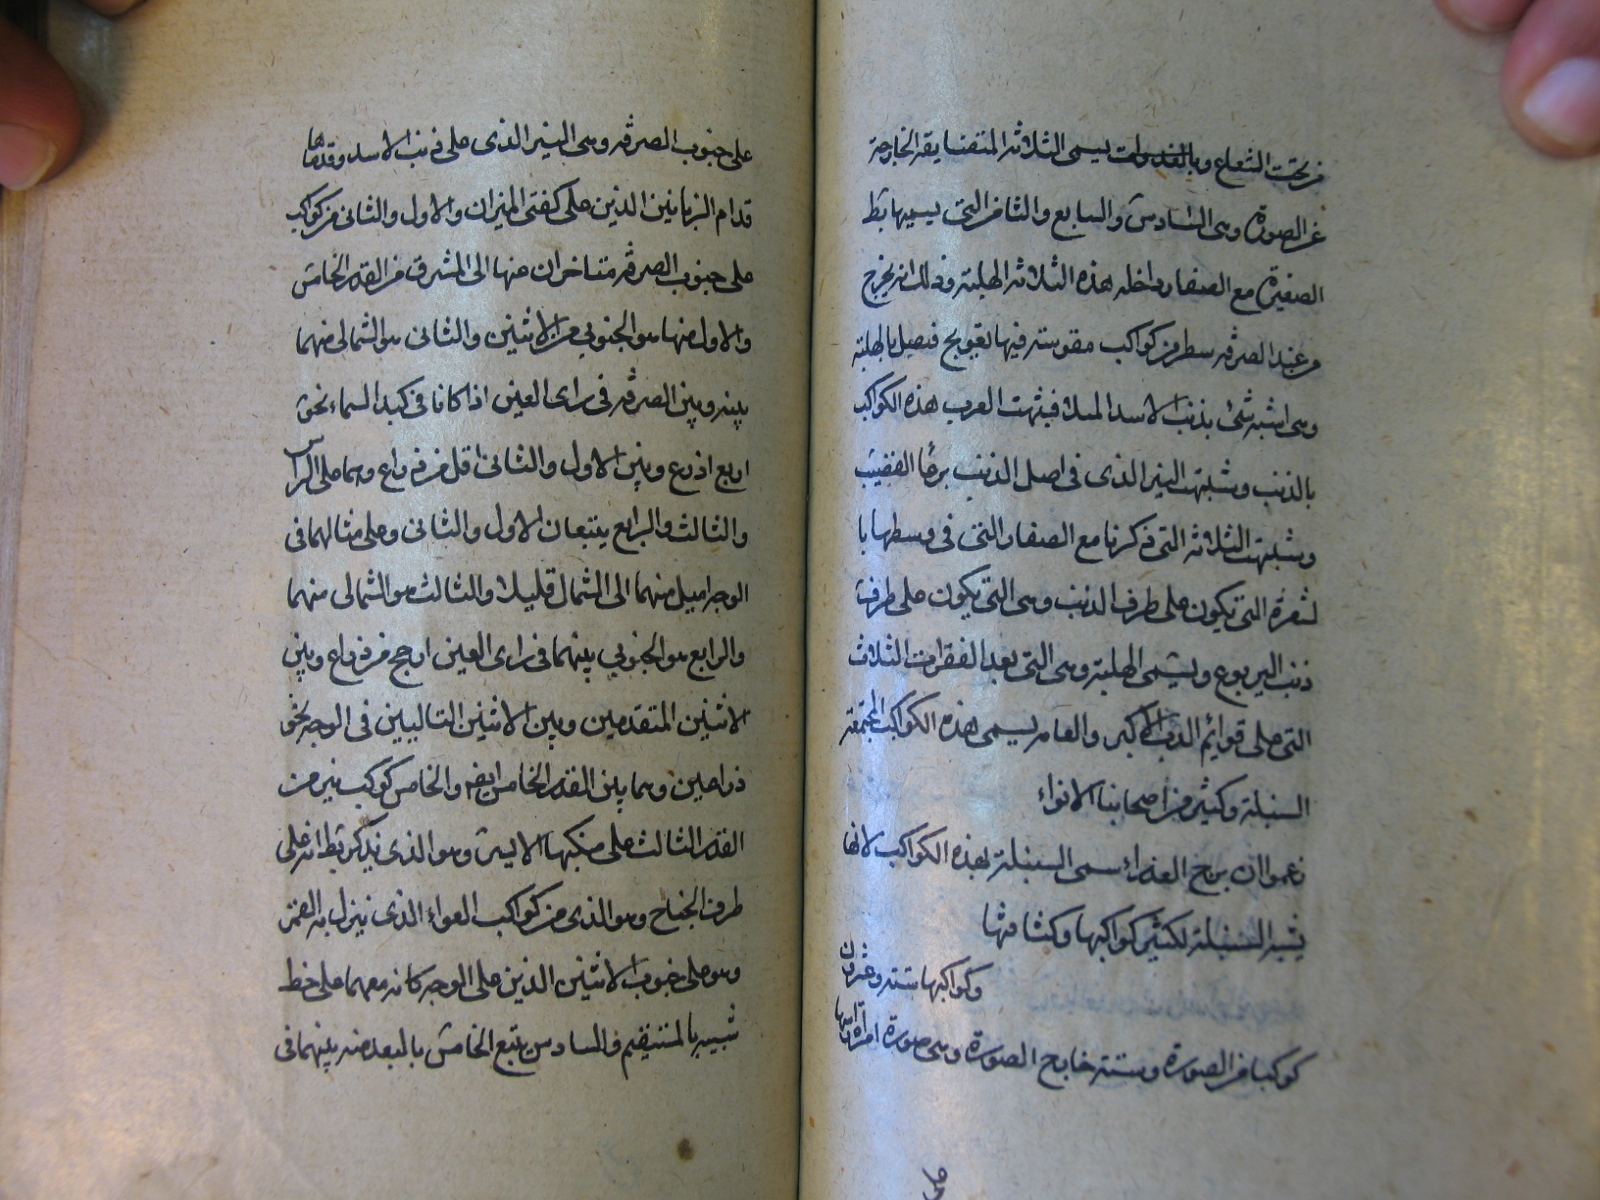 من تحت الشعاع وبالغدوات يسمى الثلاثة المتضايقة الخارجة
عن الصورة وهى السادس والسابع والثامن التى يسميها بط
الصغيرة مع الصغار داخله هذه الثلاثة الهلبة وذلك انه يخرج
من عند الصرفه سطر من كواكب مقوسة فيها تعويج فتصل بالهلبة
وهى اشبه شئ بذنب الاسد المسلا فشبهت العرب هذه الكواكب
بالذنب وشبهت النير الذى فى اصل الذنب القضيب
وشبهت الثلاثه التى ذكرنا مع الصغار التى فى وسطها با
لشعرة التى يكون على طرف الذنب وهى التى يكون على طرف
ذنب اليربوع ويسمى الهلبة وهى التى بعد الفقرات الثلاث
التى على قوائم الدب الاكبر والعامه يسمى هذه الكواكب المجتمعة
السنبلة وكثير من اصحابنا الانواء
زعموا ان برج العذراء سمى السنبلة بهذه الكواكب لانها
يشبه السنبلة لكثرة كواكبها وكثافتها
وكواكبها ستة وعشرون
كوكبا من الصورة وستة خارج الصورة وهى صورة امراة راسها
على
على جنوب الصرفه وهى النير الذى على ذنب الاسد وقدماها
قدام الزبانين الذين على كفتى الميزان والاول والثانى من كواكب
على جنوب الصرفه متاخران عنها الى المشرق من القدر الخامس
والاول منها هو الجنوبي من الاثنين والثانى هو الشمالى منهما
بينه وبين الصرفه فى راى العين اذا كانا فى كبد السماء نحو
اربع اذرع وبين الاول والثانى اقل من ذراع وهما على الراس
والثالث والرابع يتبعان الاول والثانى وعلى مثالهما فى
الوجه اميل منهما الى الشمال قليلا والثالث هو الشمالى منهما
والرابع هو الجنوبي بينهما فى راى العين ارجح من ذراع وبين
الاثنين المتقدمين وبين الاثنين التاليين فى الوجه نحو
ذراعين وهما بين القدر الخامس ايضا والخامس كوكب نير من
القدر الثالث على منكبها الايسر وهو الذى يذكر بط انه على
طرف الجناح وهو الذى من كواكب العواء الذى ينزل به القمر
وهو على جنوب الاثنين الذين على الوجه كانه معهما على خط
شبيه بالمستقيم والسادس يتبع الخامس بالبعد منه بينهما فى